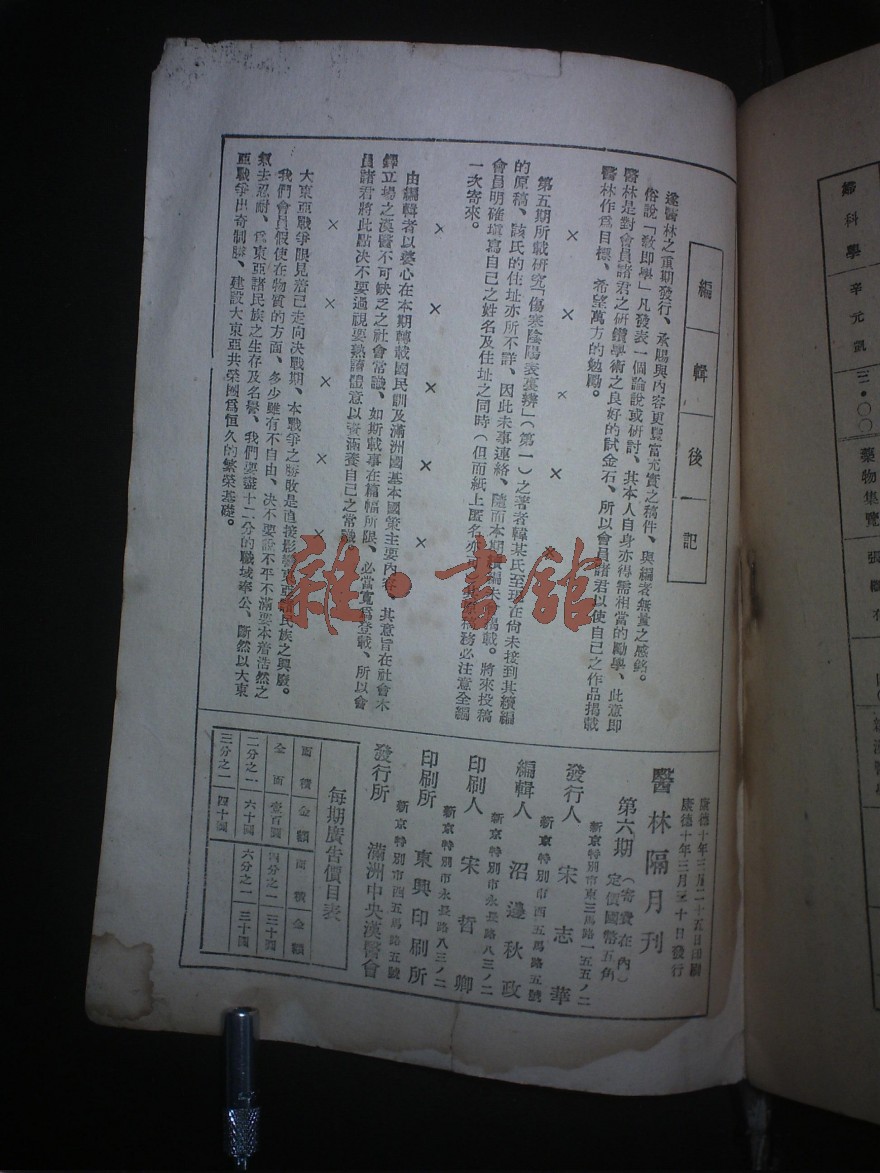 編輯後記
逢醫林之重期發行、承賜與內容更豐富充實之稿件、與編者無量之感銘。
俗說「敎即學」凡發表一個論說或研討、其本人自身亦得需相當的勵學、此意即
醫林是對會員諸君之研鑽學術之良好的試金石、所以會員諸君以使自己之作品揭載
醫林作爲目標、希望萬方的勉勵。
× × × ×
第五期所載研究「傷寒陰陽表裏辨」(第一)之著者韓某氏至現在尙未接到其續編
的原稿、該氏的住址亦所不詳、因此未事連絡、隨而本期續編未揭載。將來投稿
會員明確塡寫自己之姓名及住址之同時(但而紙上匿名亦 務必注意全編
一次寄來。
× × × ×
由編輯者以婆心在本期轉載國民訓及滿洲國基本國策主要內容、其意旨在社會木
鐸立場之漢醫不可缺乏之社會常識、如斯載事在篇幅所限、必當寬爲登載、所以會
員諸君將此點決不要過視要熟讀體意以資涵養自己之常識
× × × ×
大東亞戰爭眼見着已走向決戰期、本戰爭之勝敗是直接影響東亞諸民族之興廢。
我們會員假使在物質的方面、多少雖有不自由、決不要說不平不滿要本着浩然之
氣去忍耐、爲東亞諸民族之生存及名譽、我們要盡十二分的職域奉公、斷然以大東
亞戰爭出奇制勝、建設大東亞共榮國爲恒久的繁榮基礎。
康德十年三月二十五日印刷
康德十年三月三十日發行
醫林隔月刊
第六期 (寄費在內) 定價國幣五角
新京特別市東三馬路一五五ノ二
發行人 宋志華
新京特別市西五馬路五號
編輯人 沼邊秋政
新京特別市永長路八三ノ二
印刷人 宋哲卿
新京特別市永長路八三ノ二
印刷所 東興印刷所
新京特別市西五馬路五號
發行所 滿洲中央漢醫會
每期廣告價目表
面積 金額 面積 金額
全面 壹百圓 四分之一 三十圓
二分之一 六十圓 六分之一 三十圓
三分之一 四十圓
婦科學 辛元凱 三・〇〇
藥物集覽 張
雜·書館